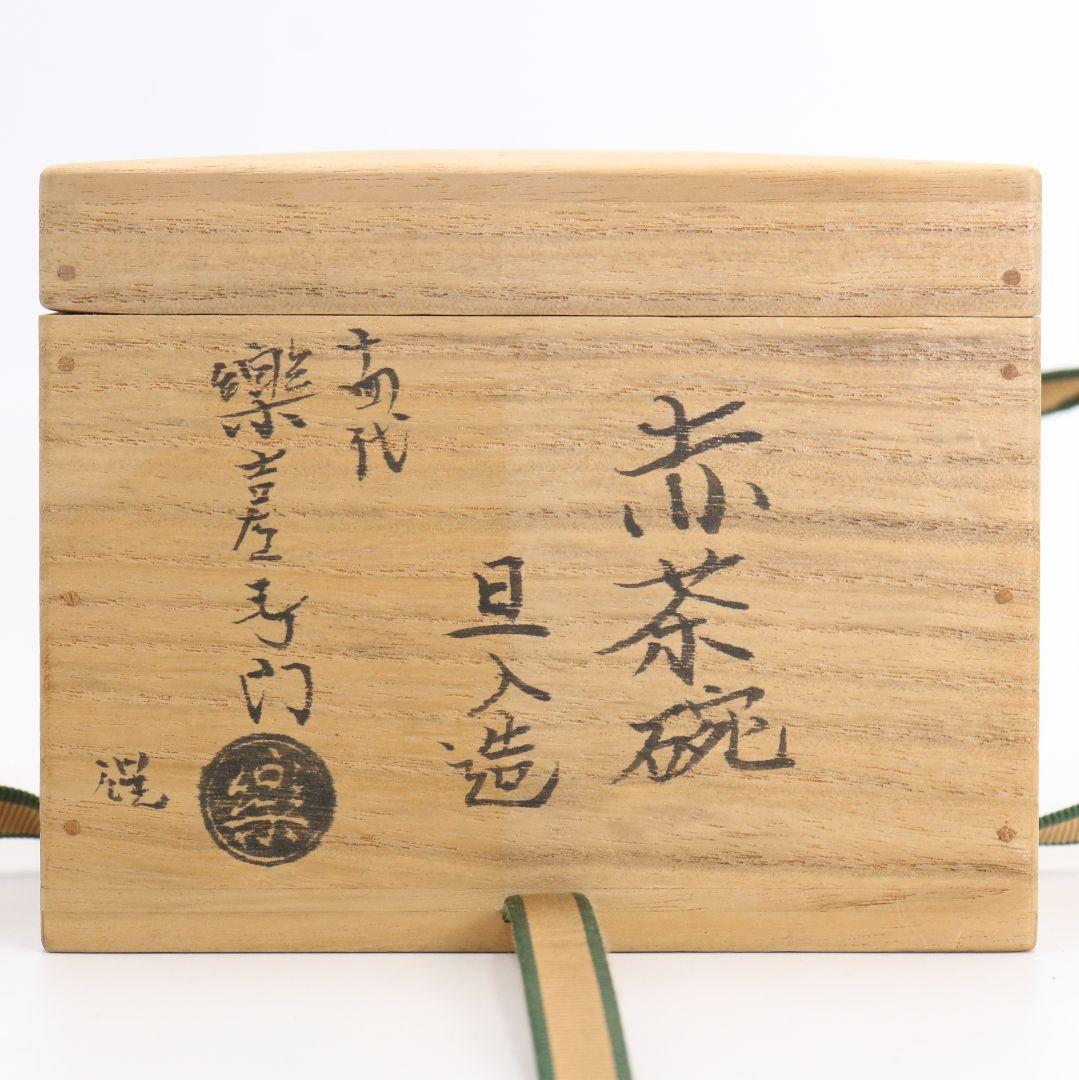 赤茶碗
旦入造
十四代
樂吉左衛門
樂